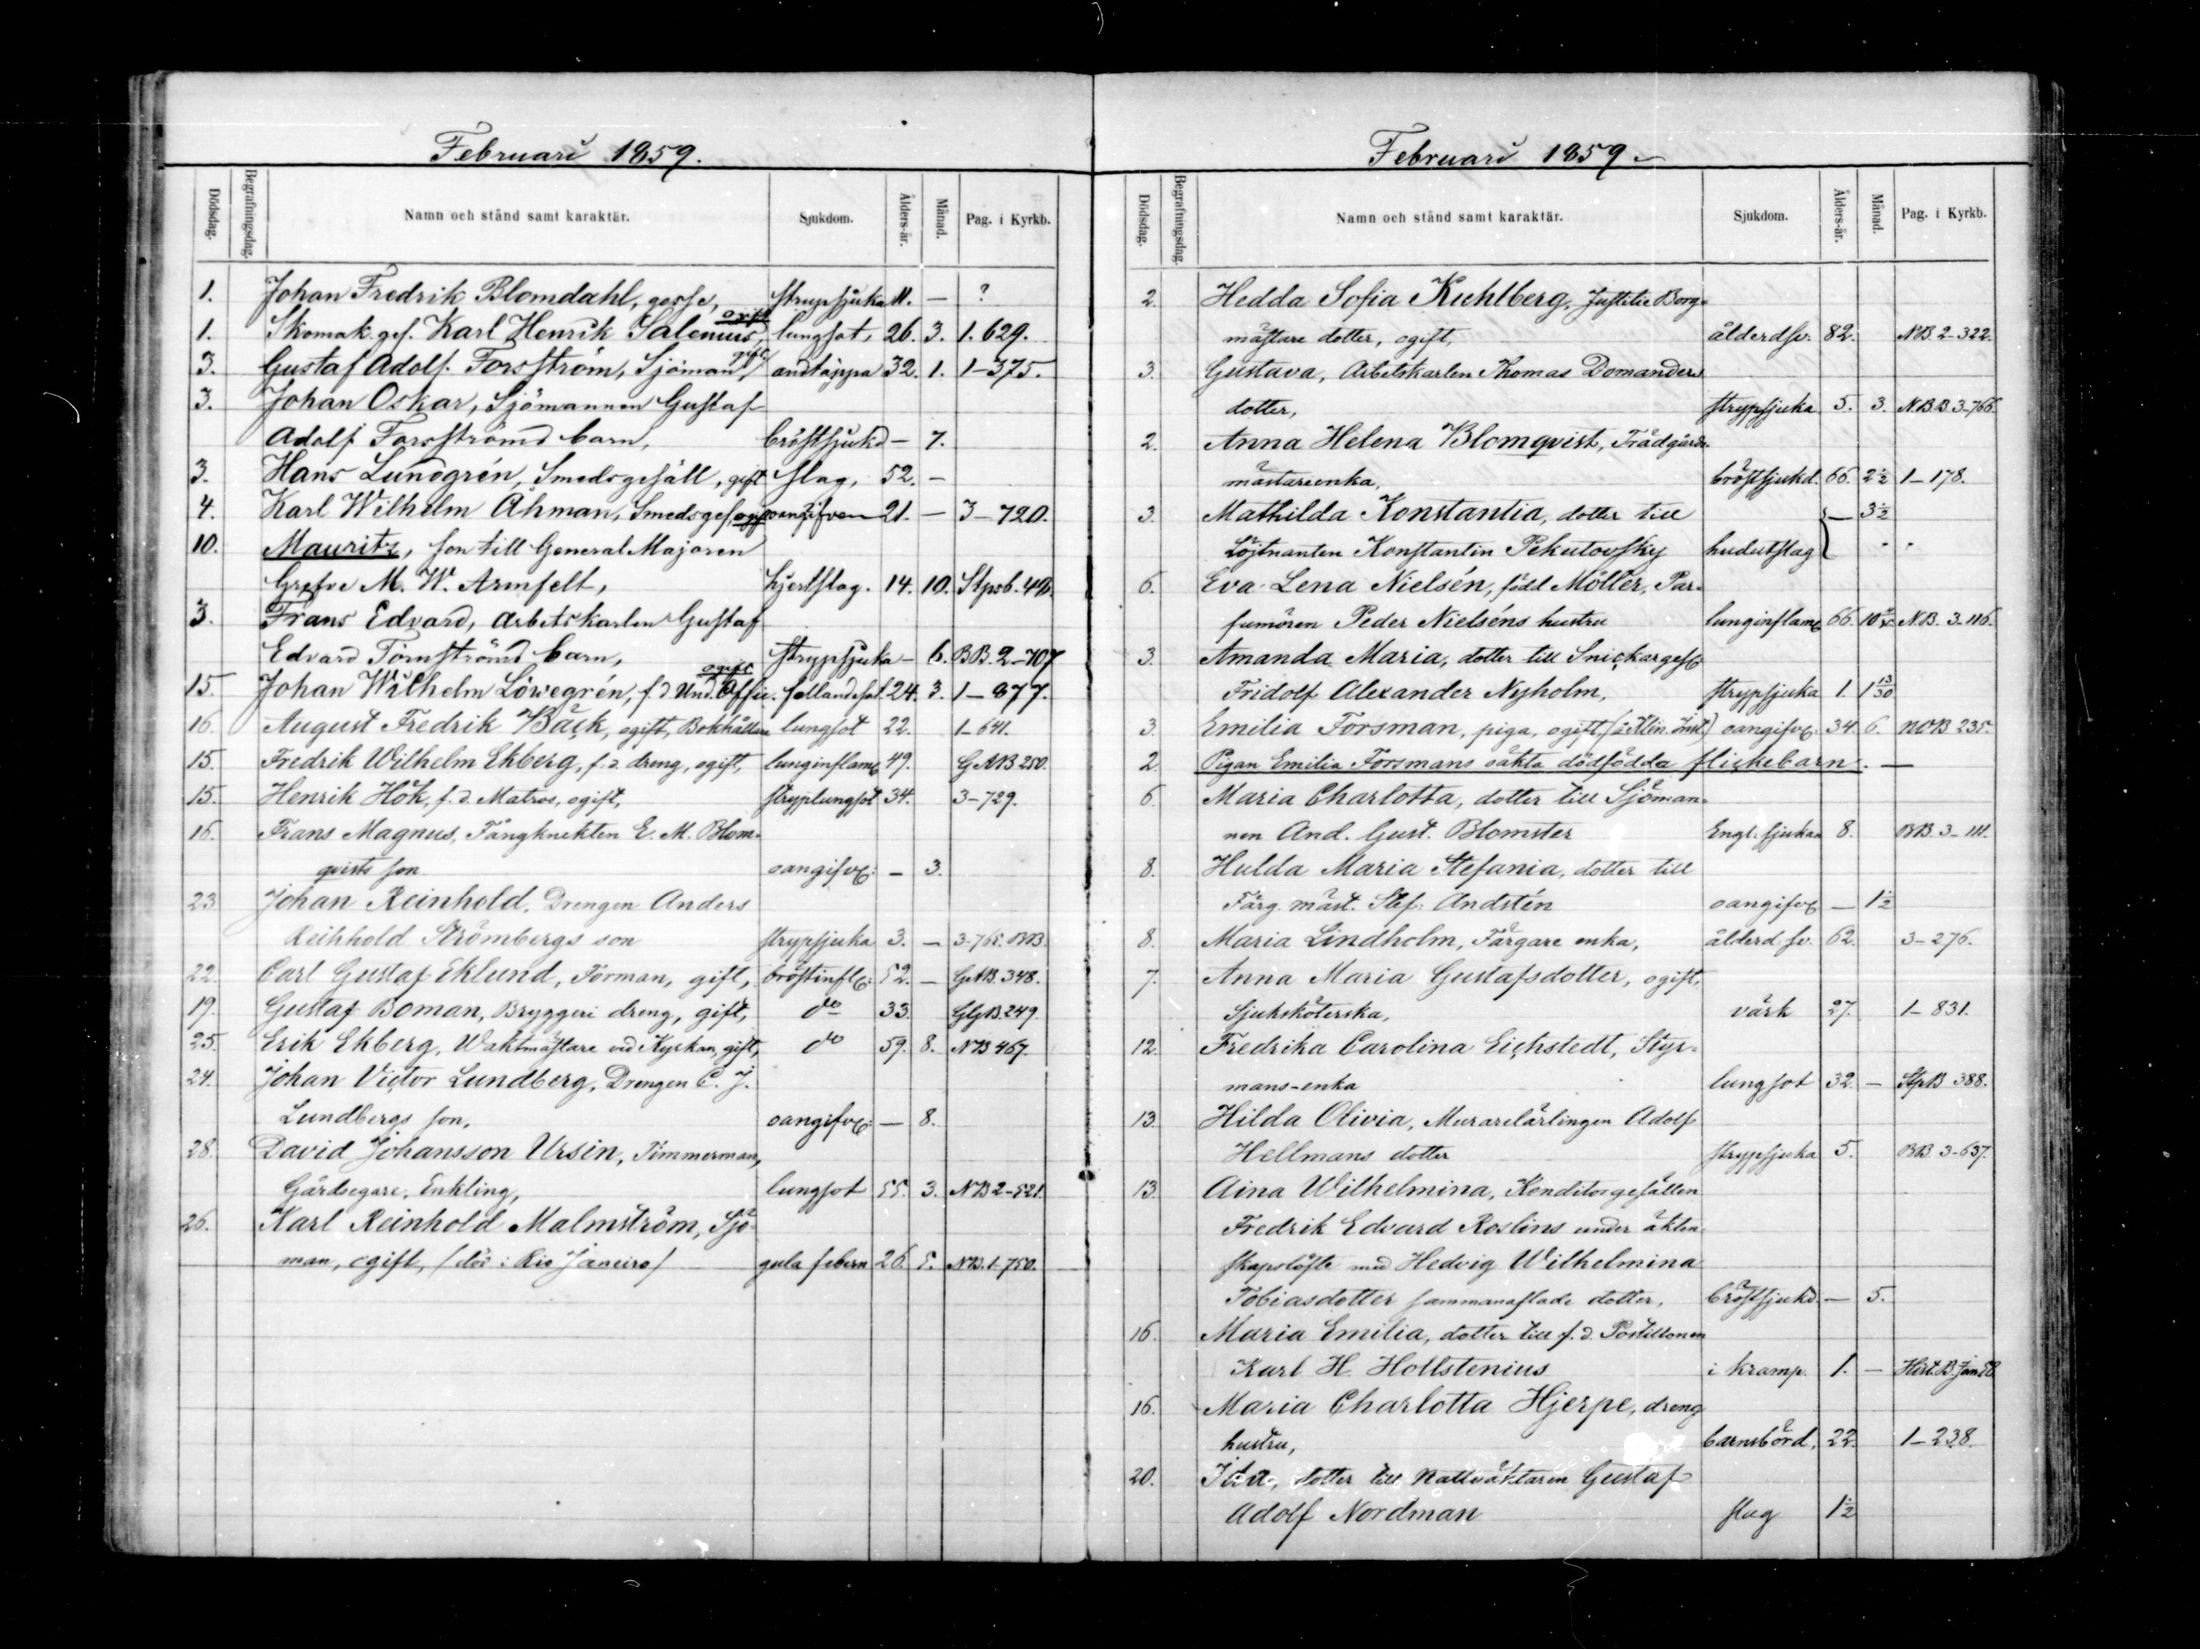 Februari 1859.
Dödsdag. Begrafningsdag. Namn och stånd samt karaktär. Sjukdom. Ålders-år. Månad. Pag. i Kyrkb.
1. Johan Fredrik Blomdahl, gosse, strupsjuka 11. — ?
ogift
1. Skomak. ges. Karl Henrik Salenius, lungsot, 26. 3. 1. 629.
3. Gustaf Adolf Forsström, Sjöman, gift, andtäppa 32. 1. 1—375.
3. Johan Oskar, Sjömannen Gustaf
Adolf Forsströms barn, bröstsjukd — 7.
3. Hans Lundgrén, Smedsgesäll, gift slag, 52. —
4. Karl Wilhelm Åhman, Smedsges, ogift oangifven 21. — 3—720.
10. Mauritz, son till General Majoren
Grefve M. W. Armfelt, hjertslag. 14. 10. Stpsb. 49.
3. Frans Edvard, Arbetskarlen Gustaf
Edvard Törnströms barn, strypsjuka — 6. BB. 2—707
ogift
15. Johan Wilhelm Löwegrén, f. d. Und. Offic. fallandesot. 24. 3. 1—877.
16. August Fredrik Bäck, ogift, Bokhållare lungsot 22. 1—641.
15. Fredrik Wilhelm Ekberg, f. d. dreng, ogift, lunginflam 49. GAB 250.
15. Henrik Hök, f. d. Matros, ogift, stryplungsot 34. 3—729.
16. Frans Magnus, Fångknekten E. M. Blom-
qvists son oangifv: — 3.
23 Johan Reinhold, Drengen Anders
Reihhold Strömbergs son strypsjuka 3. — 3-765. BB.
22. Carl Gustaf Eklund, Förman, gift, bröstinfl: 52. — GAB. 348.
19. Gustaf Boman, Bryggeri dreng, gift, do 33. GGB. 249.
25. Erik Ekberg, Waktmästare vid Kyrkan, gift, do 59. 8. NB 467.
24. Johan Victor Lundberg, Drengen C. J.
Lundbergs son, oangifv: — 8.
28. David Johansson Ursin, Timmerman,
Gårdsegare, Enkling, lungsot 55. 3. NB 2—521.
26. Karl Reinhold Malmström, Sjö-
man, ogift, /död i Rio Janeiro/ gula febern 26. 5. NB. 1-750.
Februari 1859.—
Dödsdag. Begrafningsdag. Namn och stånd samt karaktär. Sjukdom. Ålders-år. Månad. Pag. i Kyrkb.
2. Hedda Sofia Kuhlberg, Justitie Borg-
mästare dotter, ogift, ålderdsv. 82. NB. 2-322.
3. Gustava, Arbetskarlen Thomas Domanders
dotter, strypsjuka 5. 3. NBB. 3-766.
2. Anna Helena Blomqvist, Trädgårds-
mästareenka, bröstsjukd. 66. 2½ 1—178.
3. Mathilda Konstantia, dotter till — 3½
Löjtnanten Konstantin Pekutovsky hudutslag
6. Eva Lena Nielsén, född Möller, Par-
fumören Peder Nielséns hustru lunginflam 66. 10 NB. 3-116.
3. Amanda Maria, dotter till Snickarges
Fridolf Alexander Nyholm, strypsjuka 1. 1 13/30
3. Emilia Forsman, piga, ogift, (å Klin. Inst.) oangifv: 34. 6. NOB 235.
2. Pigan Emilia Forsmans oäkta dödfödda flickebarn. —
6. Maria Charlotta, dotter till Sjöman-
nen And. Gust. Blomster Engl. sjukan 8. BB. 3-111.
8. Hulda Maria Stefania, dotter till
Färg. mäst. Stef. Andstén oangifv — 1½
8. Maria Lindholm, Färgare enka, ålderd. sv. 62. 3—276.
7. Anna Maria Gustafsdotter, ogift,
Sjuksköterska, värk 27. 1—831.
12. Fredrika Carolina Eichstedt, Styr-
mans-enka lungsot 32. — StpB 388.
13. Hilda Olivia, Murarelärlingen Adolf
Hellmans dotter strypsjuka 5. BB. 3-637.
13. Aina Wilhelmina, Konditorgesällen
Fredrik Edvard Roslins under äkten-
skapslöfte med Hedvig Wilhelmina
Tobiasdotter sammanaflade dotter, bröstsjukd. — 5.
16. Maria Emilia, dotter till f. d. Postillonen
Karl H. Hollstenius i kramp. 1. — Hist. B. Jan 58
16. Maria Charlotta Hjerpe, dreng
hustru, barnsbörd, 22. 1—238.
20. Ida, dotter till Nattväktaren Gustaf
Adolf Nordman slag 1½